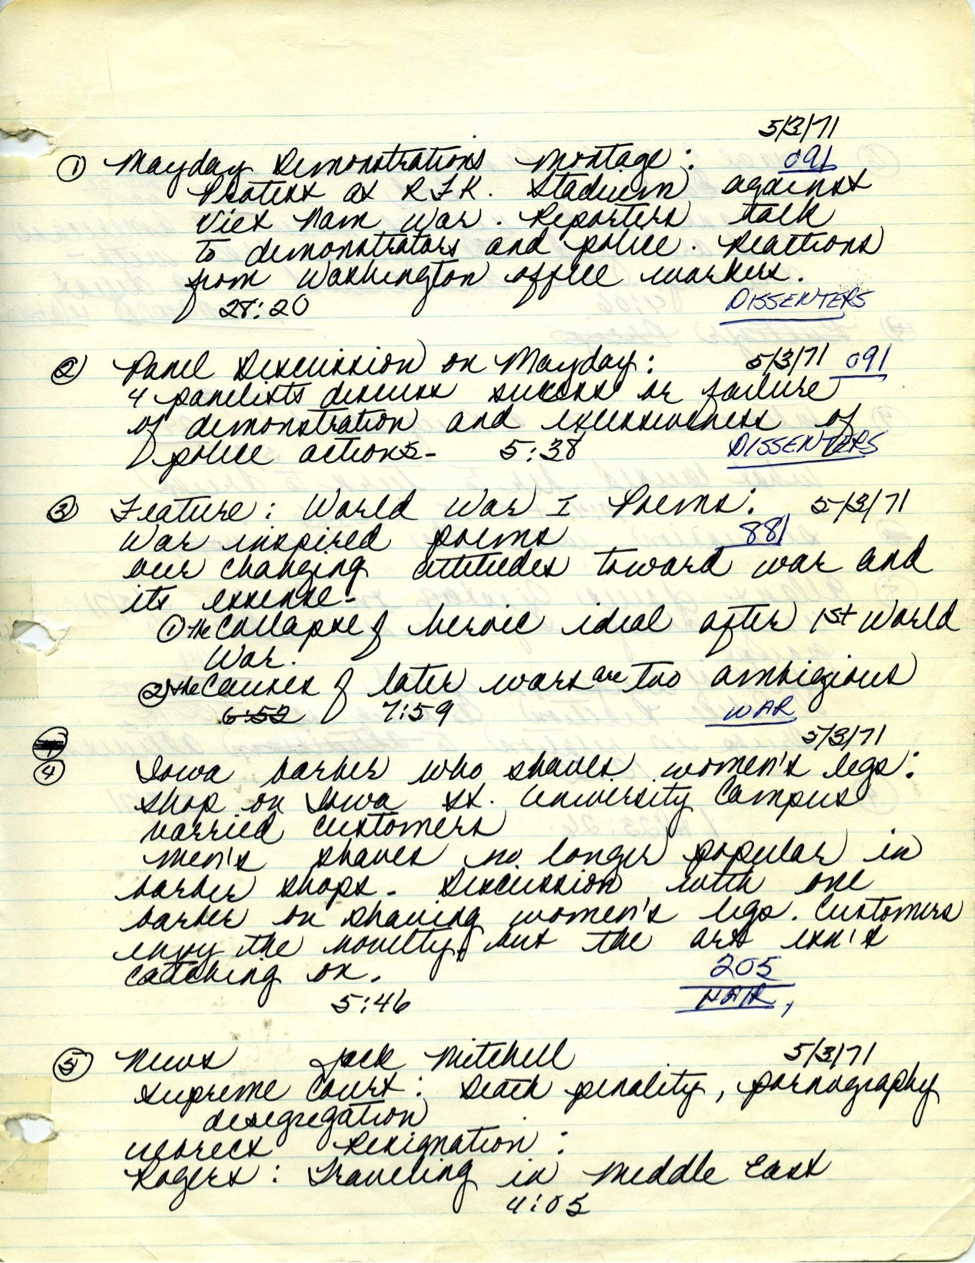 5/3/71
① Mayday Demonstrations Montage: 091
Protest at R.F.K. Stadium against
Viet Nam War. Reporters talk
to demonstrators and police. Reactions
from Washington office workers.
28:20 DISSENTERS
② Panel Discussion on Mayday: 5/3/71 091
4 panelists discuss success or failure
of demonstration and excessiveness of
police actions- 5:38 DISSENTERS
③ Feature: World War I Poems: 5/3/71
War inspired poems 881
our changing attitudes toward war and
its essense-
① the Collapse of heroic ideal after 1st World
War.
② the Causes of later wars are too ambigious
6:52 7:59 WAR
5/3/71
④ Iowa barber who shaves women's legs:
shop on Iowa St. University Campus
varried customers
men's shaves no longer popular in
barber shops- Discussion with one
barber on shaving women's legs. Customers
enjoy the novelty, but the art isn't
catching on. 205
5:46 HAIR,
⑤ News Jack Mitchell 5/3/71
Supreme Court: Death penality, pornography
desegregation
Resignation:
Rogers: Traveling in Middle East
4:05